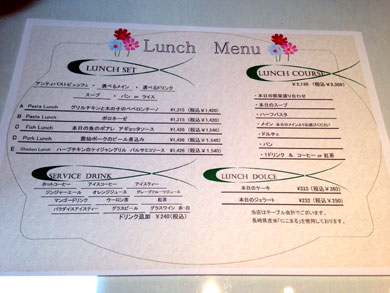 Lunch Menu
LUNCH SET
アンティパストビュッフェ ・ 選べるメイン ・ 選べるドリンク
スープ ・ パン or ライス
A Pasta Lunch グリルチキンと木の子のペペロンチーノ ¥1,315 (税込¥1,420)
B Pasta Lunch ボロネーゼ ¥1,315 (税込¥1,420)
C Fish Lunch 本日の魚のポアレ アチョッタソース ¥1,426 (税込¥1,540)
D Pork Lunch 雲仙ポークのビール煮込み ¥1,426 (税込¥1,540)
E Chicken Lunch ハーブチキンのケイジャングリル バルサミコソース ¥1,426 (税込¥1,540)
LUNCH COURSE
・本日の前菜盛り合わせ
・本日のスープ
・ハーフパスタ
・メイン
・ドルチェ
・パン
・1ドリンク & コーヒー or 紅茶
SERVICE DRINK
ホットコーヒー アイスコーヒー アイスティー
ジンジャーエール オレンジジュース グレープフルーツジュース
マンゴードリンク ウーロン茶 紅茶
パラダイスアイスティー グラスビール グラスワイン 赤・白
ドリンク追加 ¥240(税込)
LUNCH DOLCE
本日のケーキ ¥333 (税込¥360)
本日のジェラート ¥232 (税込¥250)
当店はテーブル会計でございます。
長崎県産米「にこまる」を使用しております。